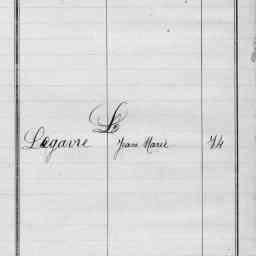 L
Legavre Jean Marie 74